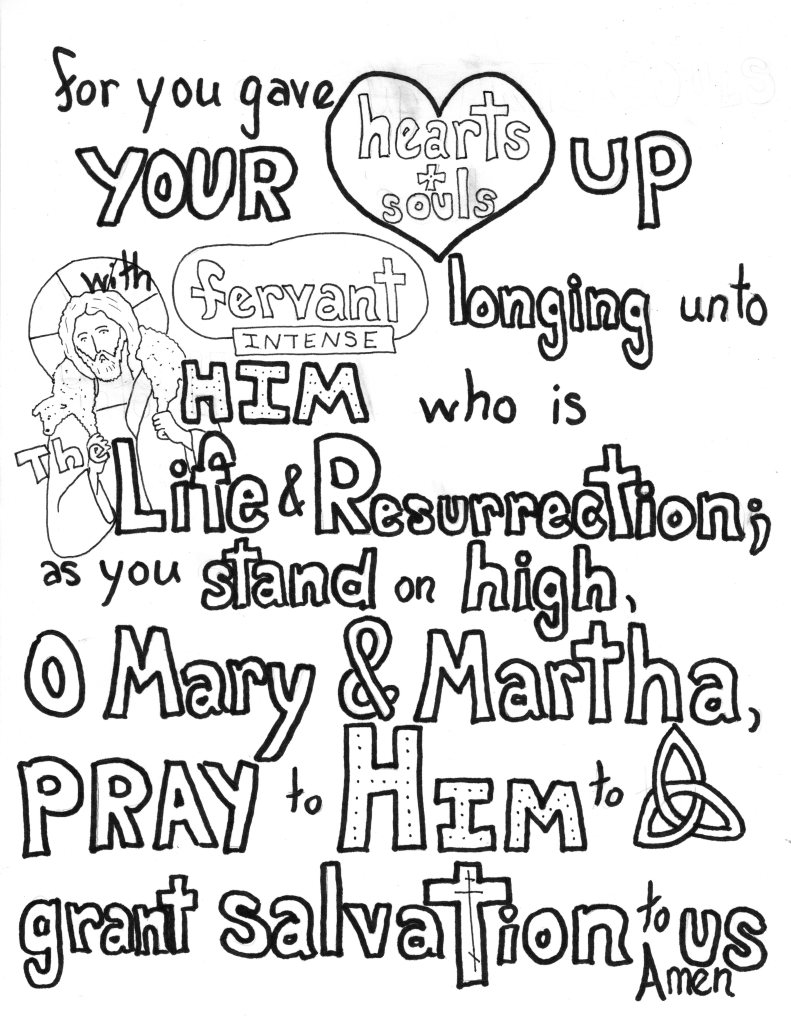 for you gave
YOUR hearts + souls up
with fervant INTENSE longing unto
HIM who is
The Life & Resurrection;
as you stand on high,
O Mary & Martha,
PRAY to HIM to
grant salvation to us
Amen